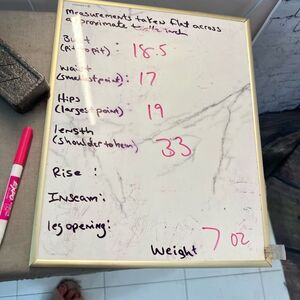 measurements taken flat across
approximate to the inch
Bust
(pit to pit): 18.5
waist
(smallest point): 17
Hips
(largest point) 19
length
(shoulder to hem) 33
Rise :
Inseam:
leg opening:
Weight 7 oz
EXPO